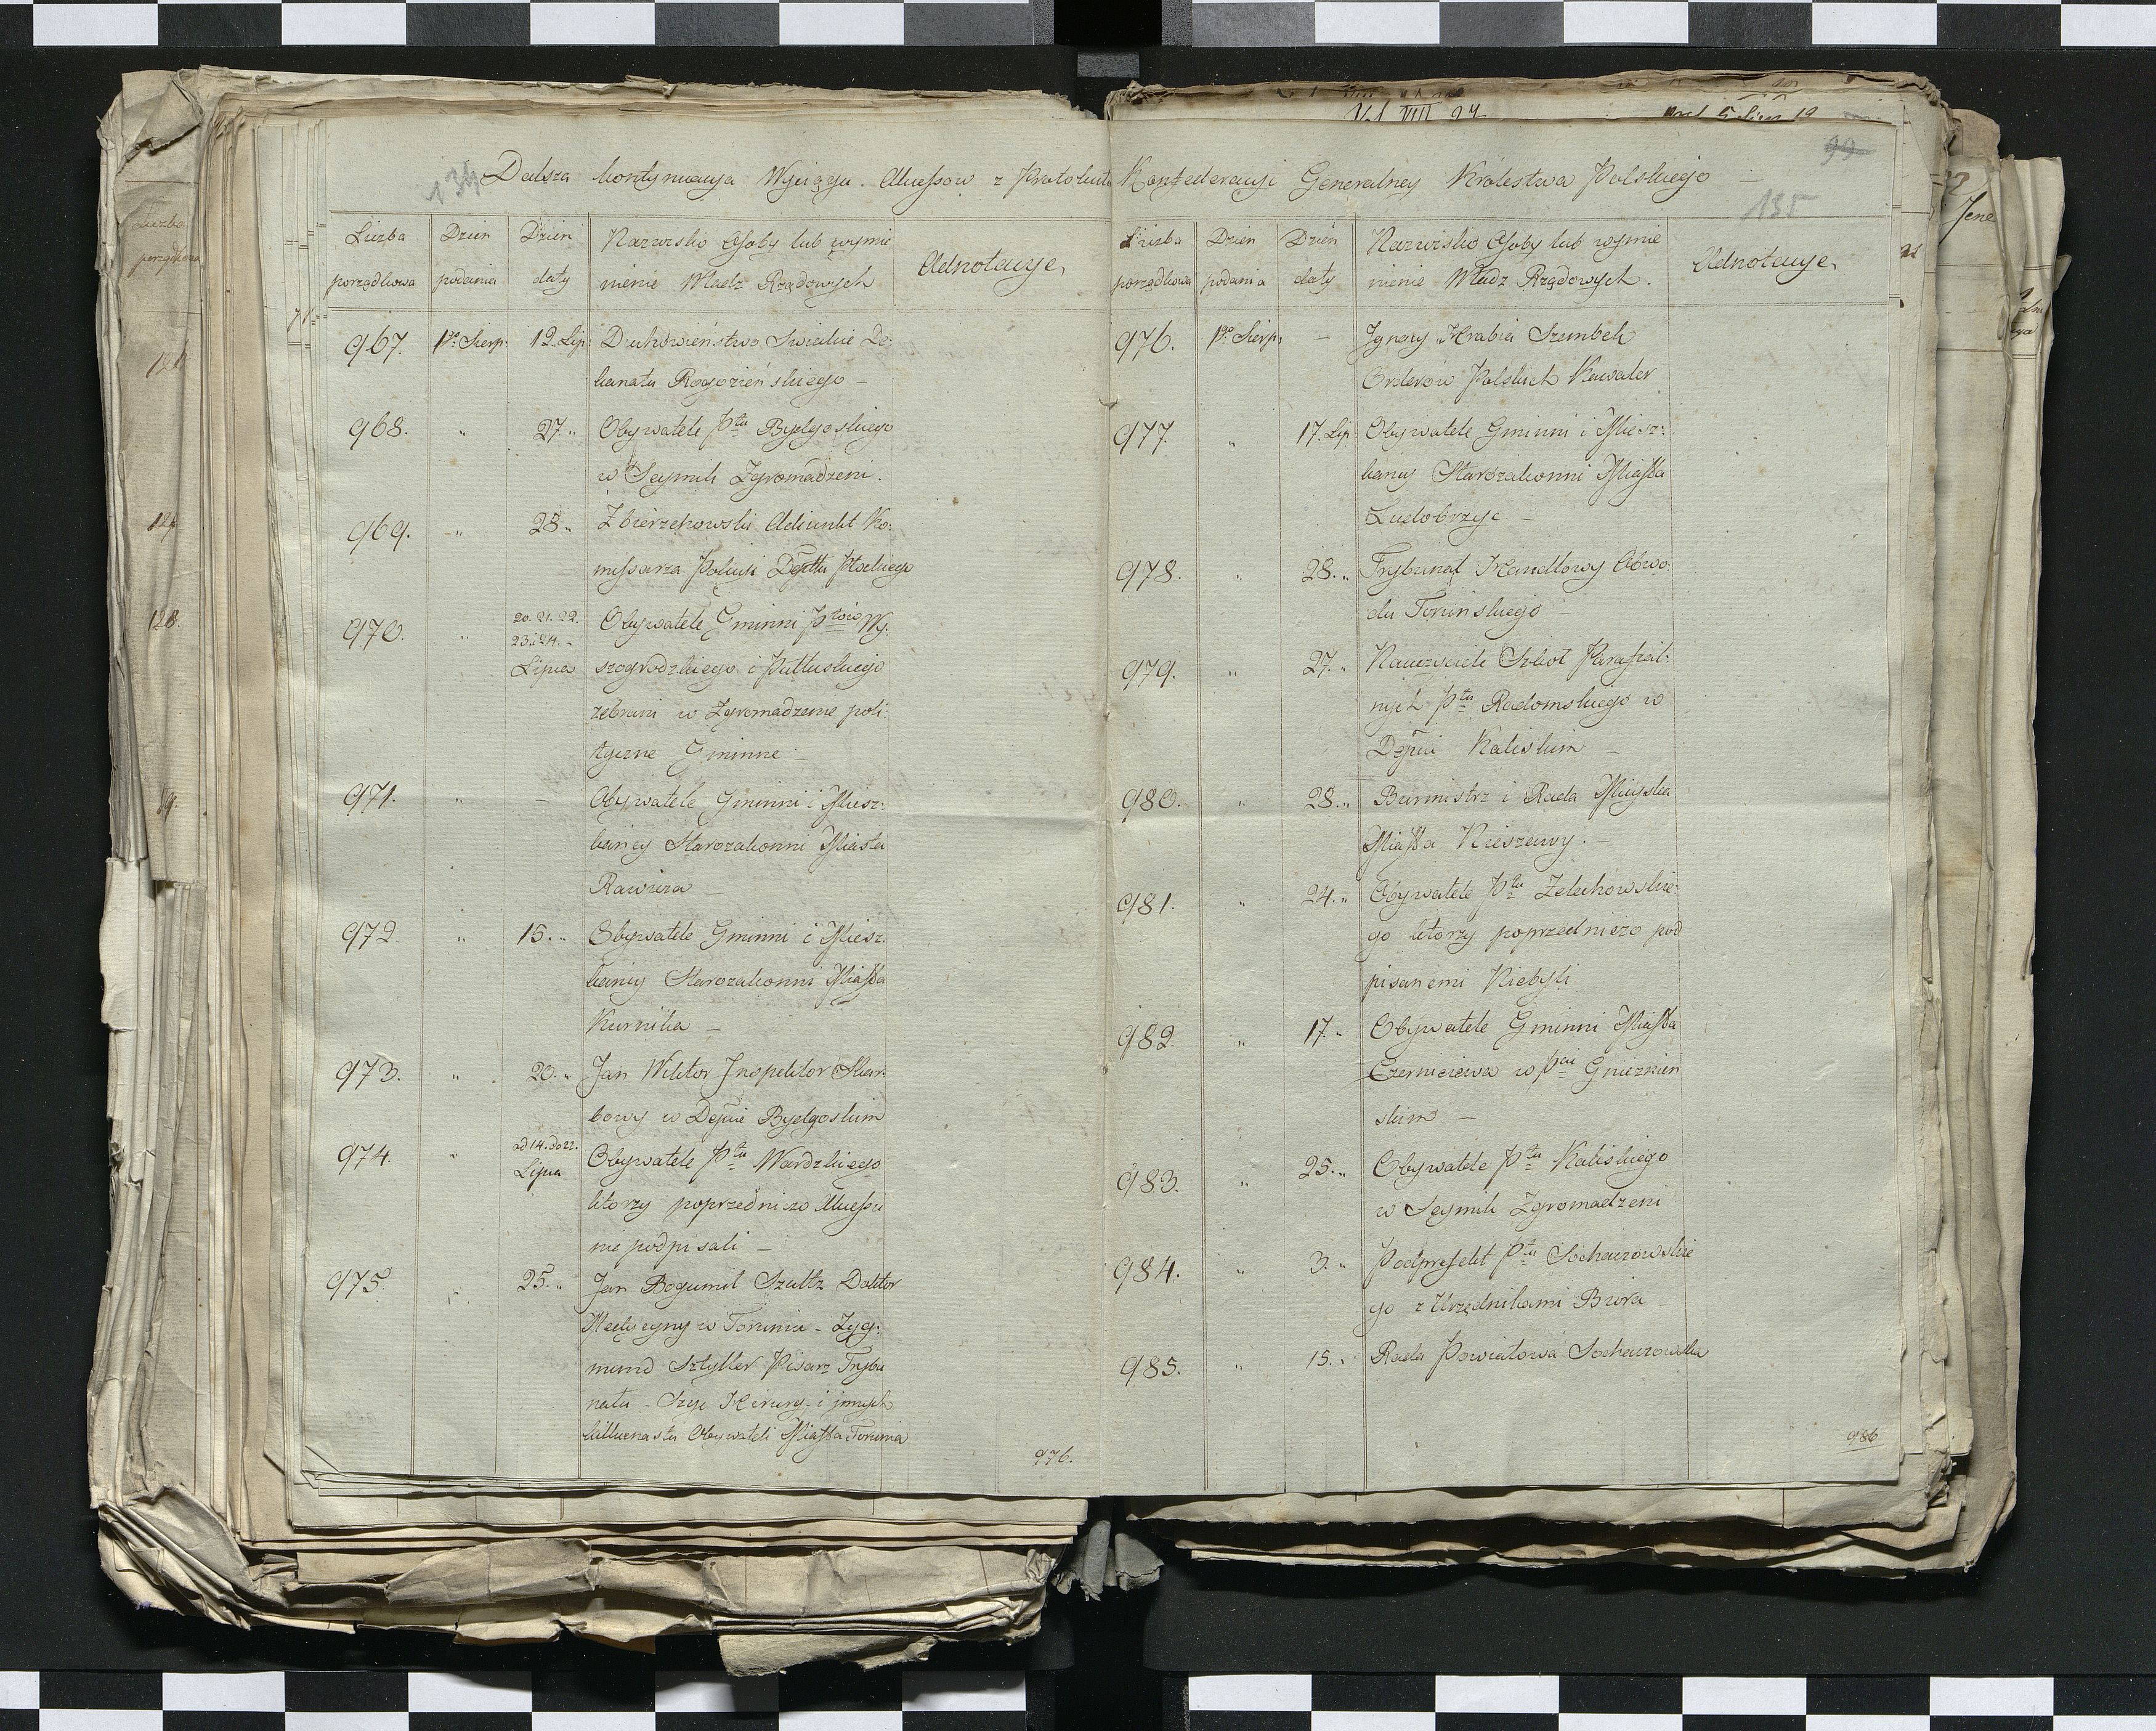 134
Dalsza kontynuacya Wyciągu Akcessow z Protokułu Konfederacyi Generalney Królestwa Polskiego
99
135
Liczba porządkowa
Dzień podania
Dzień daty
Nazwisko Osoby lub wymie
nienie Władz Rządowych
Adnotacye
967. 1go Sierp: 12. Lip: Duchowieństwo Swieckie De:
kanatu Rogozieńskiego –
968. " 27. " Obywatele Ptu Bydgoskiego
w Seymik Zgromadzeni.
969. " 28 " Zbierzchowski Adiunkt Ko:
missarza Policyi Depttu Płockiego
970. " 20. 21. 22.
23. i 24. –
Lipca
Obywatele Gminni Ptów Wy:
szogrodzkiego i Pułtuskiego
zebrani w Zgromadzenie poli:
tyczne Gminne –
971. " – Obywatele Gminni i Miesz:
kańcy Starozakonni Miasta
Rawicza –
972. " 15. " Obywatele Gminni i Miesz:
kańcy Starozakonni Miasta
Kurnika –
973. " 20. " Jan Wiktor Inspektor Skar:
bowy w Depcie Bydgoskim
974. " od 14. do 22.
Lipca
Obywatele Ptu Wardzkiego
ktorzy poprzedniczo Akcessu
nie podpisali –
975. " 25. " Jan Bogumił Szultz Doktor
Medycyny w Toruniu – Zyg:
mund Sztyller Pisarz Trybu
nału – Szyc Hirurg – i innych
kilkunastu Obywateli Miasta Torunia
976.
Liczba porządkowa
Dzień podania
Dzień daty
Nazwisko Osoby lub wymie
nienie Władz Rządowych.
Adnotacye
976. 1go Sierp: – Ignacy Hrabia Szembek
Orderow Polskich Kawaler
977. " 17. Lip: Obywatele Gminni i Miesz:
kańcy Starozakonni Miasta
Ludobrzyc –
978. " 28. " Trybunał Handlowy Obwo:
du Toruńskiego –
979. " 27. " Nauczyciele Szkoł Parafial:
nych Ptu Radomskiego w
Depcie Kaliskim –
980. " 28. " Burmistrz i Rada Mieyska
Miasta Nieszawy. –
981. " 24. " Obywatele Ptu Zelechowskie:
go ktorzy poprzedniczo pod
pisanemi Niebyli
982. " 17. " Obywatele Gminni Miasta
Czerniejewa w Pcie Gnieznień
skim –
983. " 25. " Obywatele Ptu Kaliskiego
w Seymik Zgromadzeni
984. " 3. " Podprefekt Ptu Sochaczowskie
go z Urzędnikami Biora –
985. " 15. " Rada Powiatowa Sochaczowska
986